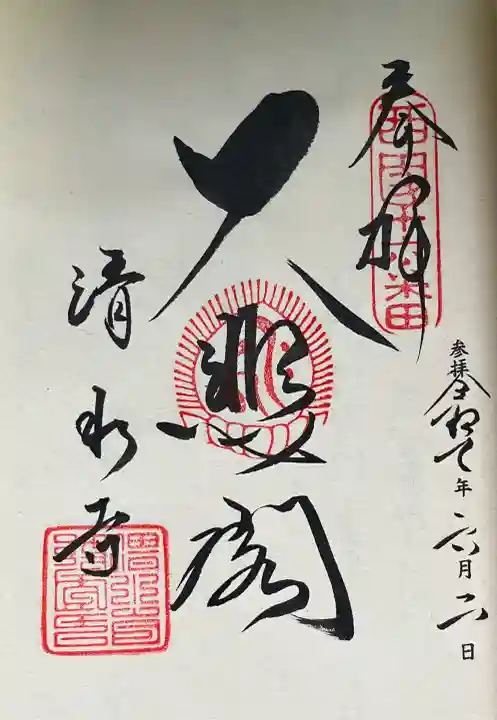 奉拝
参拝 令和元年 六月二日
大悲閣
清水寺